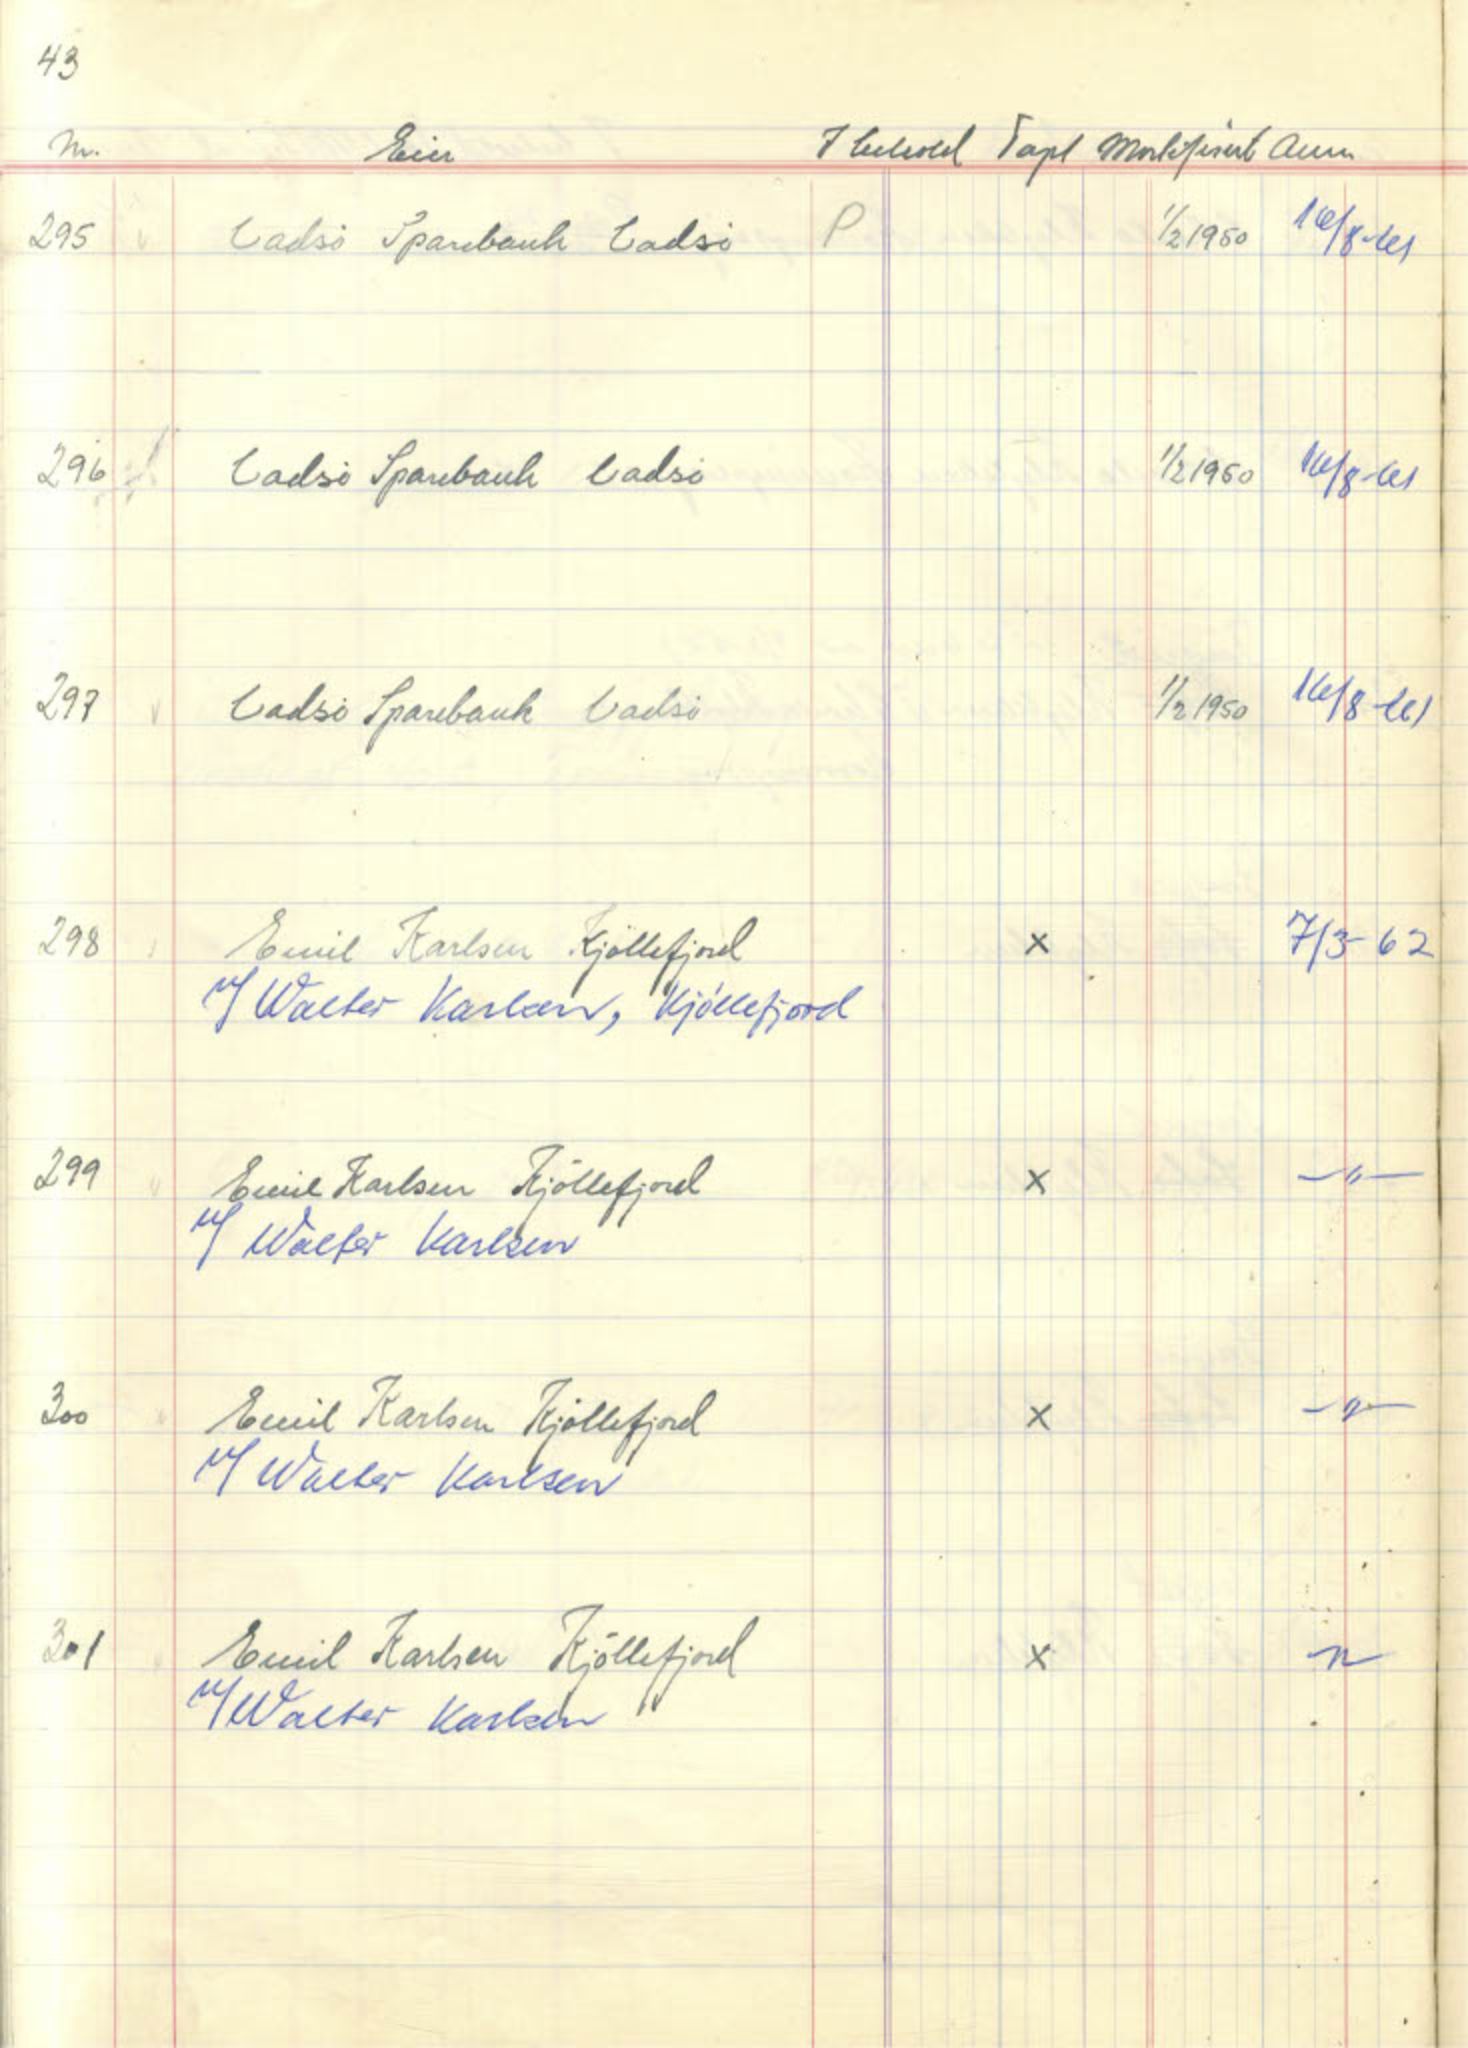 43
Nr. Eier I behold Tapt Mortifisert Anm
295 " Vadsö Sparebank Vadsö P 1/2 1950 16/8-61
296 Vadsö Sparebank Vadsö 1/2 1950 16/8-61
297 " Vadsö Sparebank Vadsö 1/2 1950 16/8-61
298 Emil Karlsen Kjöllefjord × 7/3-62
v/ Walter Karlsen, Kjöllefjord
299 " Emil Karlsen Kjöllefjord × —"—
v/ Walter Karlsen
300 " Emil Karlsen Kjöllefjord × —"—
v/ Walter Karlsen
301 Emil Karlsen Kjöllefjord × —"—
v/ Walter Karlsen